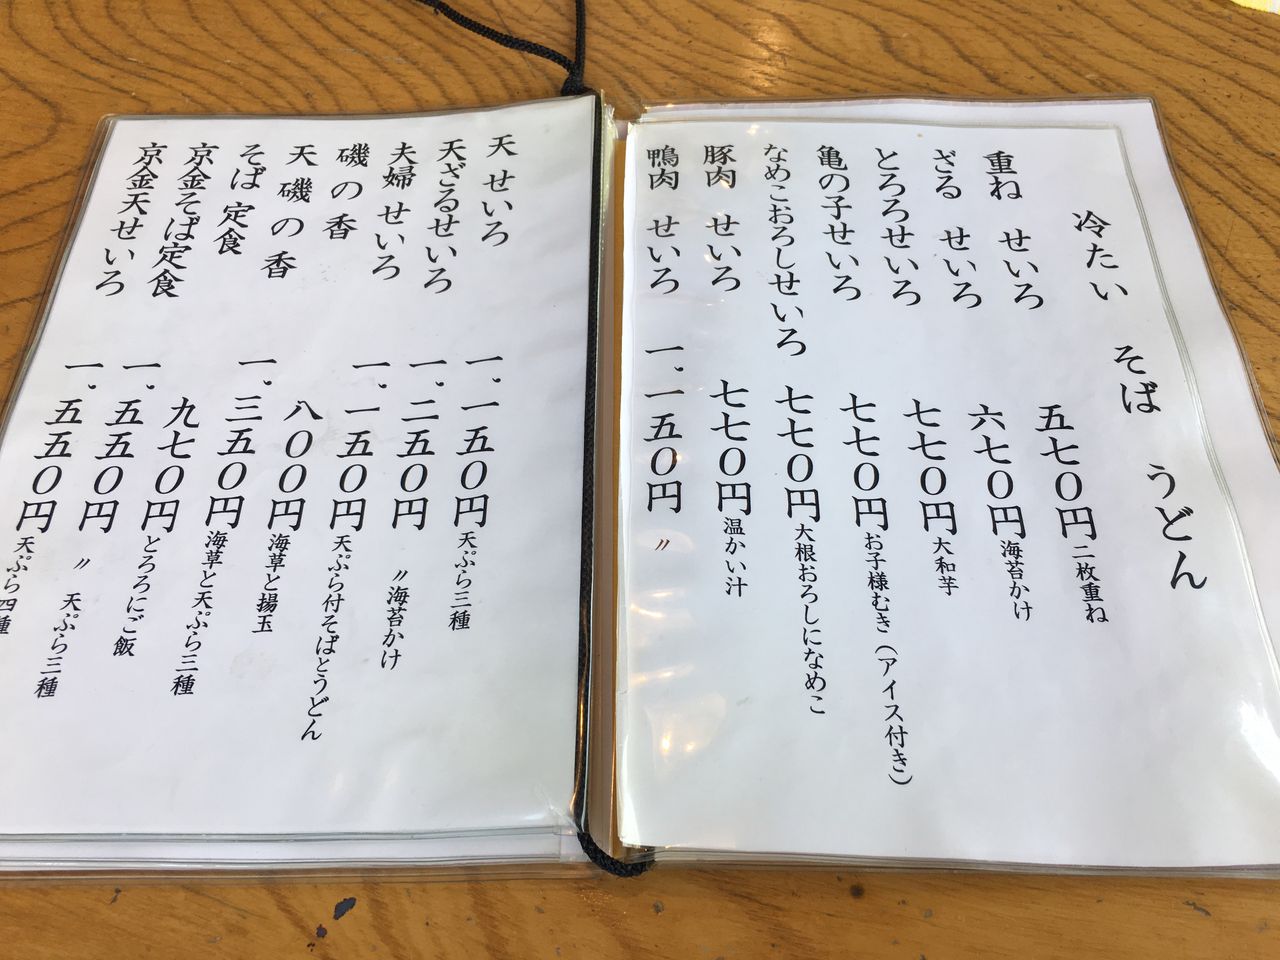 冷たい そば うどん
重ね せいろ 五七〇円 二枚重ね
ざる せいろ 六七〇円 海苔かけ
とろろせいろ 七七〇円 大和芋
亀の子せいろ 七七〇円 お子様むき(アイス付き)
なめこおろしせいろ 七七〇円 大根おろしになめこ
豚肉 せいろ 七七〇円 温かい汁
鴨肉 せいろ 一.一五〇円 〃
天 せいろ 一.一五〇円 天ぷら三種
天ざるせいろ 一.二五〇円 〃海苔かけ
夫婦 せいろ 一.一五〇円 天ぷら付そばとうどん
磯の香 八〇〇円 海草と揚玉
天 磯の香 一.三五〇円 海草と天ぷら三種
そば 定食 九七〇円 とろろにご飯
京金そば定食 一.五五〇円 〃 天ぷら三種
京金天せいろ 一.五五〇円 天ぷら四種